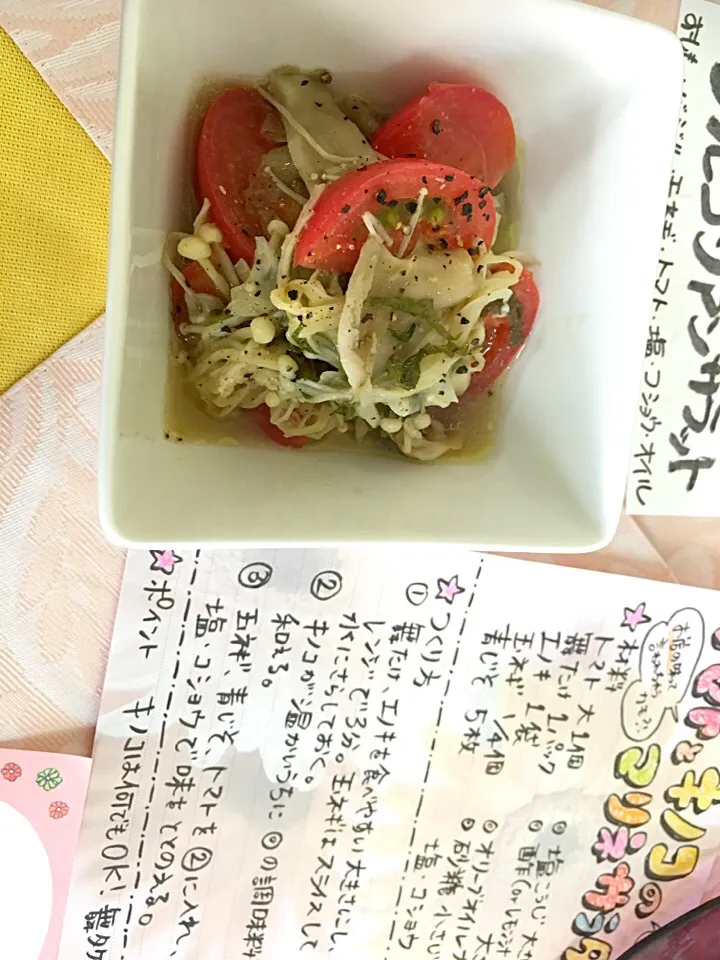 コリアンサラダ
玉ネギ・トマト・塩・コショウ・オイル
トマトとキノコの
マリネサラダ
材料
トマト 大1個
舞たけ 1パック
エノキ 1袋
玉ネギ 1/4個
青じそ 5枚
塩こうじ 大
酢(orレモン汁
オリーブオイル 大
砂糖 小さい
塩・コショウ
つくり方
① 舞たけ、エノキを食べやすい大きさにし、
レンジで3分。玉ネギはスライスして
水にさらしておく。
② キノコが温かいうちに◎の調味料
和える。
③ 玉ネギ、青じそ、トマトを②に入れ、
塩・コショウで味をととのえる。
ポイント
キノコは何でもOK! 舞タケ